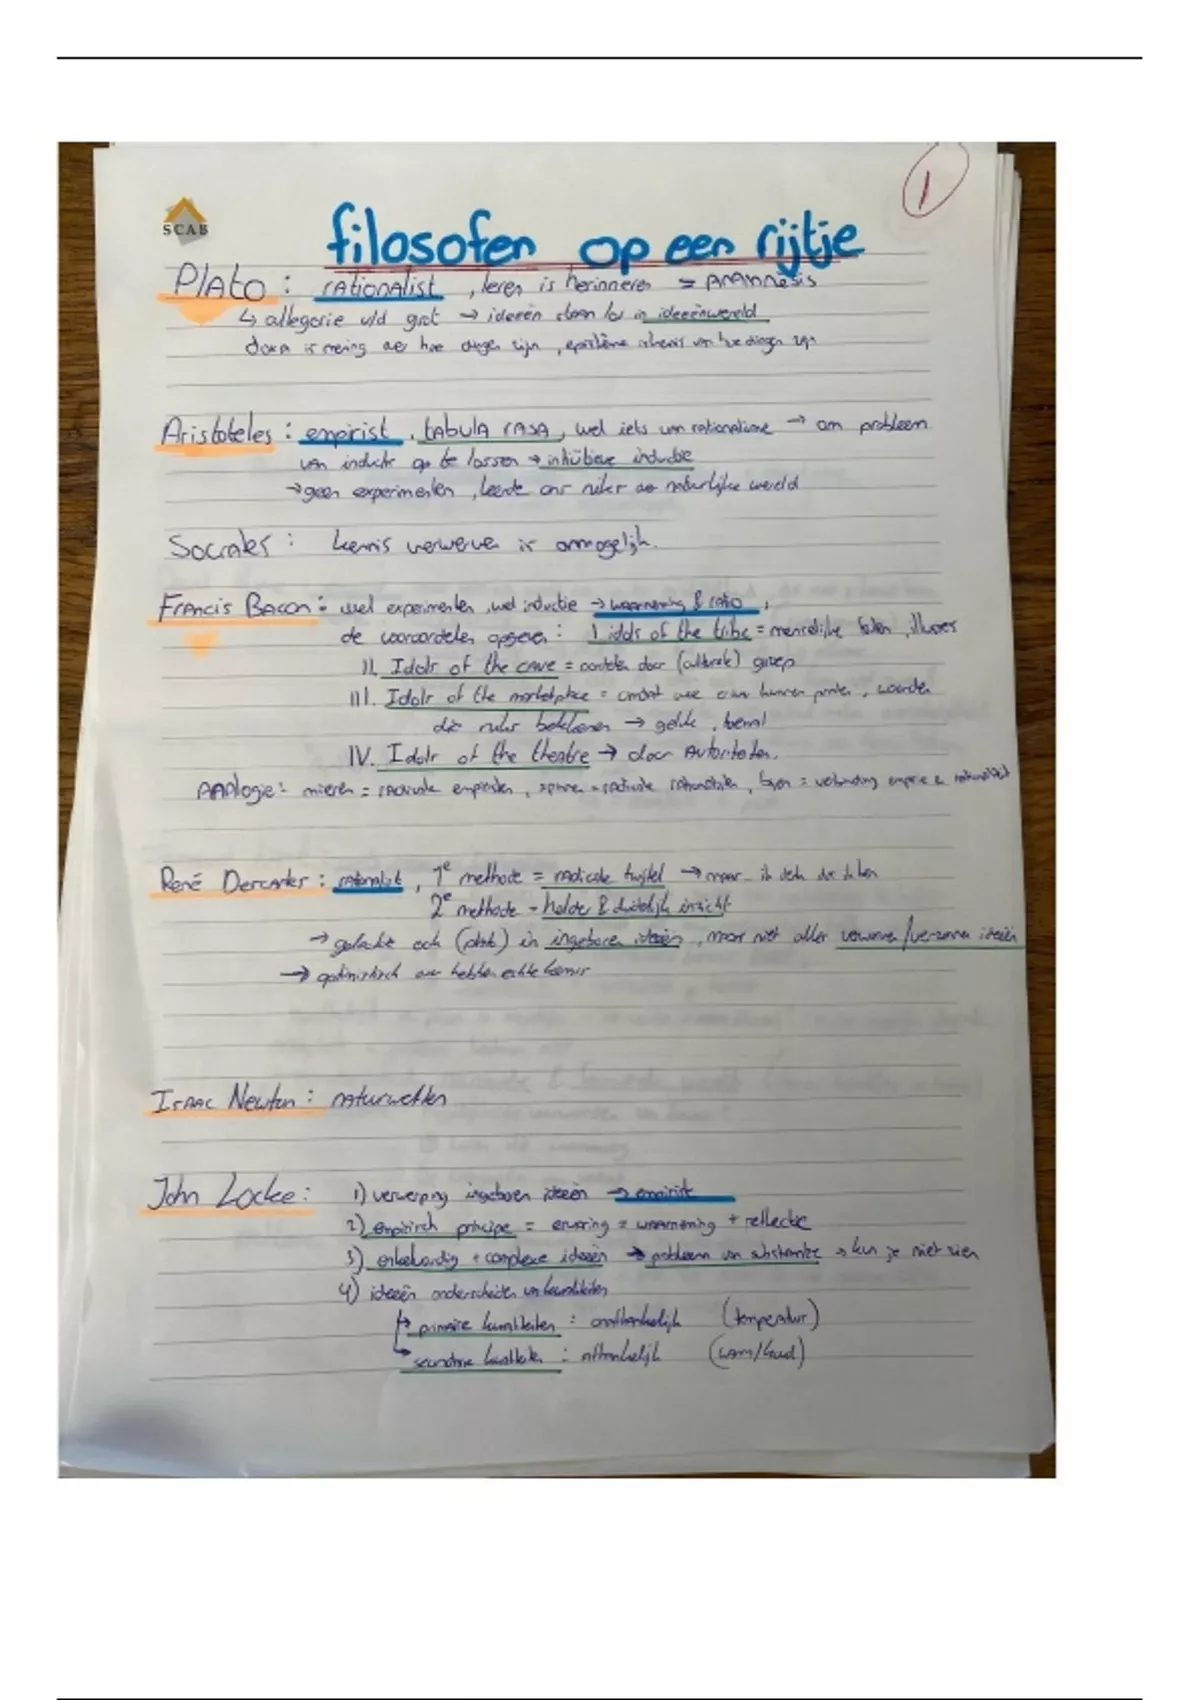 1
SCAB
filosofen op een rijtje
Plato: rationalist, leren is herinneren = Anamnesis
↳ allegorie v/d grot → ideeën staan los in ideeënwereld
doxa is mening over hoe dingen zijn, epistème is kennis van hoe dingen zijn
Aristoteles: empirist, tabula rasa, wel iets van rationalisme → om probleem
van inductie op te lossen → intuïtieve inductie
→ geen experimenten, leerde ons over de natuurlijke wereld
Socrates: kennis verwerven is onmogelijk.
Francis Bacon: wel experimenten, wel inductie → waarneming & ratio,
de vooroordelen opgeven: I idols of the tribe = menselijke fouten, illusies
II. Idols of the cave = door (culturele) groep
III. Idols of the marketplace = omdat we over kunnen praten, woorden
die betekenen → geluk, toeval
IV. Idols of the theatre → door Autoriteiten.
Analogie: mieren = radicale empiristen, spinnen = radicale rationalisten, bijen = verbinding empirie & rationaliteit
René Descartes: rationalist, 1e methode = radicale twijfel → maar ik denk dus ik ben
2e methode = helder & duidelijk inzicht
→ geloofde ook (plato) in ingeboren ideeën, maar niet alleen verworven/verzonnen ideeën
→ optimistisch over hebben echte kennis
Isaac Newton: natuurwetten
John Locke: 1) verwerping ingeboren ideeën → empirist
2) empirisch principe = ervaring = waarneming + reflectie
3) enkelvoudig + complexe ideeën → probleem van substantie → kun je niet zien
4) ideeën onderscheiden van kwaliteiten
↳ primaire kwaliteiten: onafhankelijk (temperatuur)
↳ secundaire kwaliteiten: afhankelijk (warm/koud)